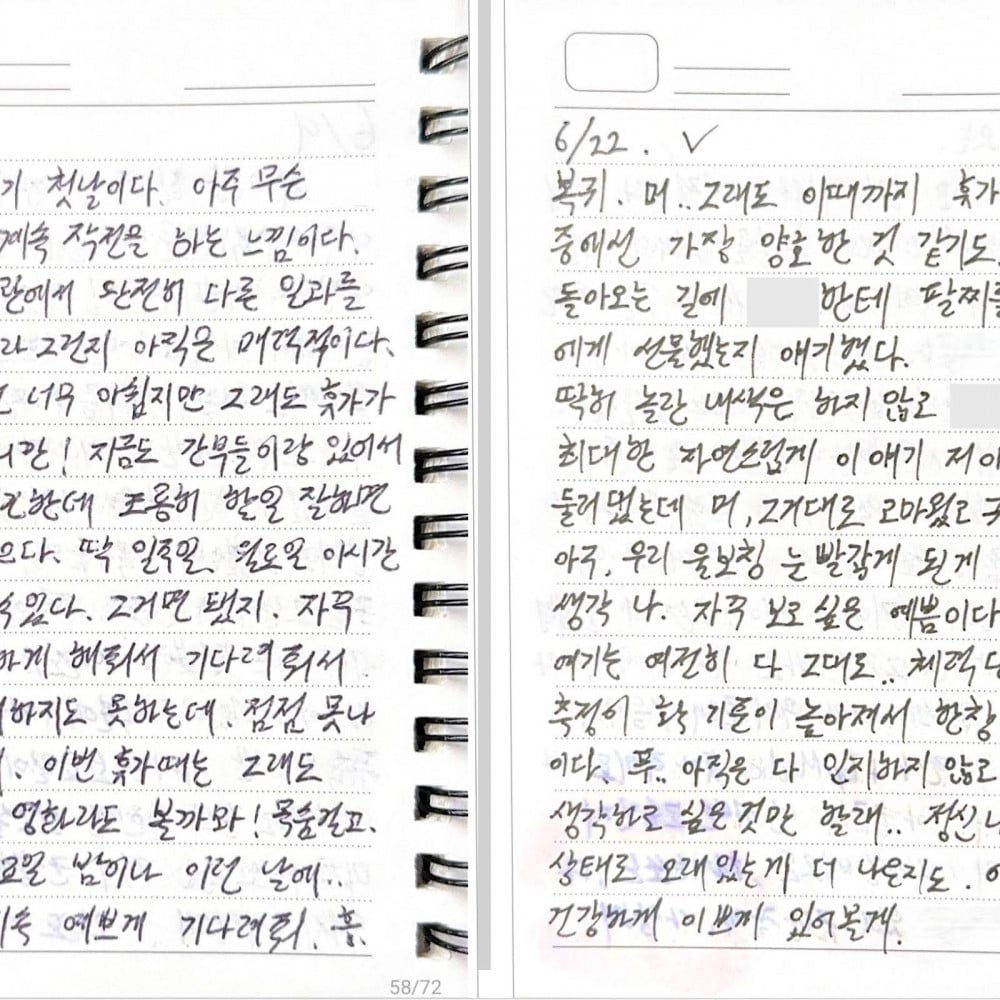 첫날이다. 아주 무슨
계속 작전을 하는 느낌이다.
관에서 완전히 다른 일과를
라 그런지 아직은 매력적이다.
너무 아쉽지만 그래도 휴가가
니깐! 지금도 간부들이랑 있어서
한데 초롱히 할일 잘하면
으다. 딱 일주일, 월요일 이시간
있다. 그거면 됐지. 자꾸
하게 해줘서 기다려줘서.
하지도 못하는데. 점점 못나
. 이번 휴가때는 그래도
영화라도 볼까와! 목숨걸고.
요일 밤이나 이런 날에..
계속 예쁘게 기다려줘. 흠.
58/72
6/22. ✓
복귀. 머.. 그래도 이때까지 휴가
중에선 가장 양호한 것 같기도.
돌아오는 길에 한테 팔찌를
에게 선물했는지 얘기했다.
딱히 놀란 내색은 하지 않고
최대한 자연스럽게 이 얘기 저 이
둘러댔는데 머, 그거대로 고마웠고
아주, 우리 울보칭 눈 빨갛게 된게
생각 나. 자꾸 보고 싶은 예쁨이다
여기는 여전히 다 그대로.. 체력
측정이 확 기준이 높아져서 한창
이다. 푸.. 아직은 다 인지하지 않고
생각하고 싶은 것만 할래.. 정신
상태로 오래 있는게 더 나은지도.
건강하게 이쁘게 있어볼게.